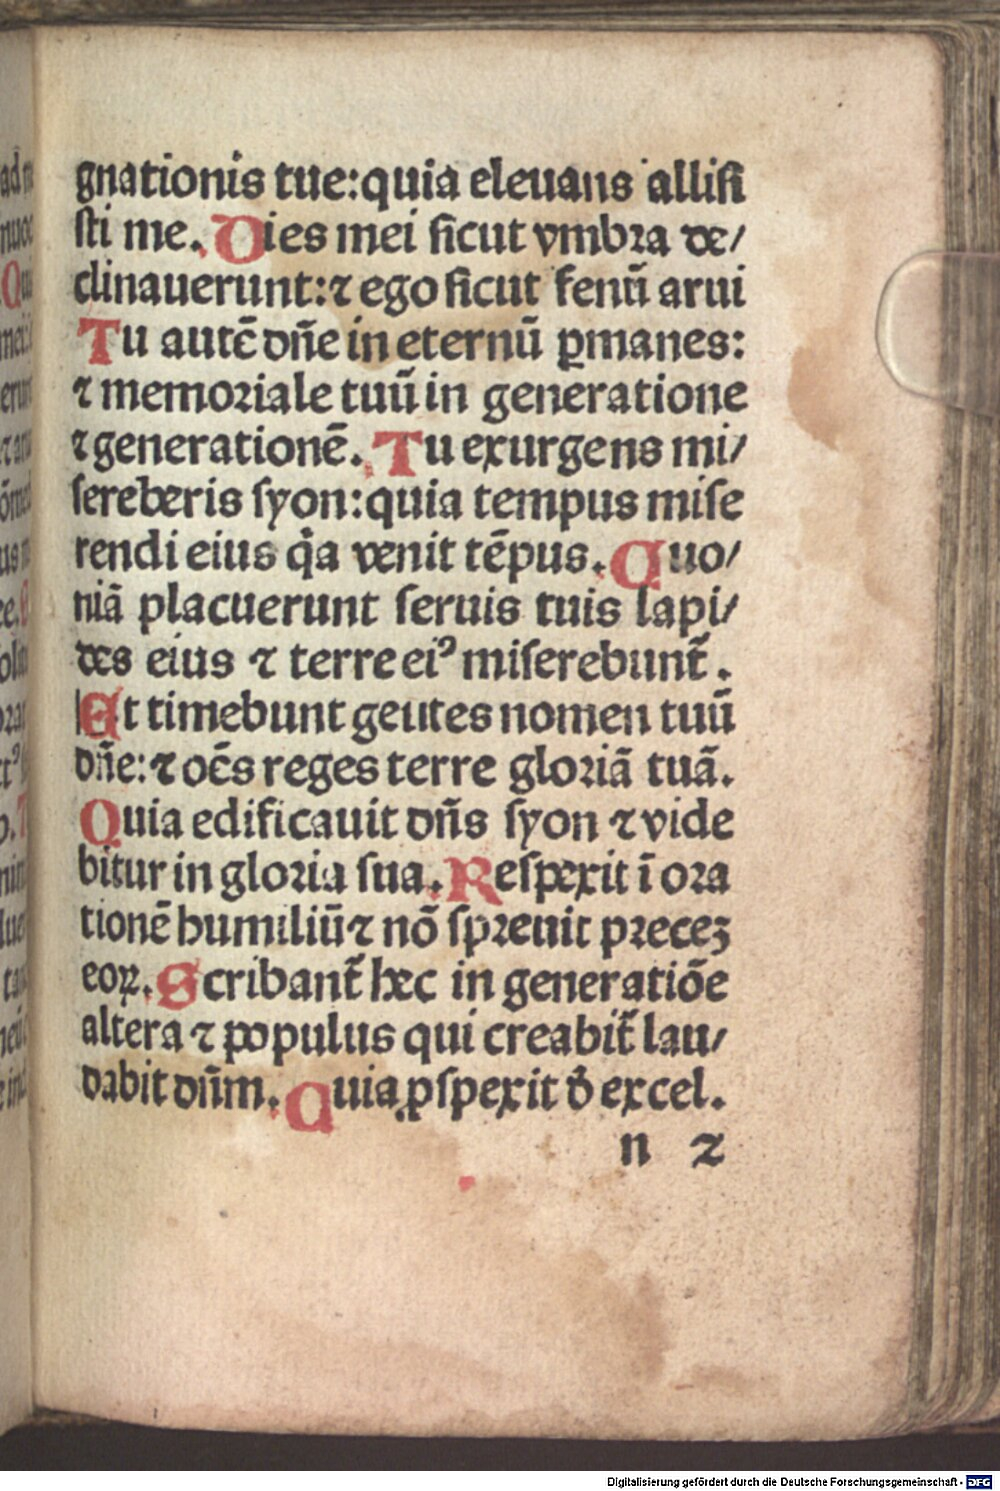 gnationis tue:quia eleuans allisi
sti me. Dies mei sicut vmbra de/
clinauerunt:⁊ ego sicut fenū arui
Tu autē dn̄e in eternū ꝑmanes:
⁊ memoriale tuū in generatione
⁊ generationē. Tu exurgens mi/
sereberis syon:quia tempus mise
rendi eius q̄a venit tēpus. Quo/
niā placuerunt seruis tuis lapi/
des eius ⁊ terre ei⁹ miserebunt̄.
Et timebunt gentes nomen tuū
dn̄e:⁊ oēs reges terre gloriā tuā.
Quia edificauit dn̄s syon ⁊ vide
bitur in gloria sua. Respexit ī ora
tionē humiliū ⁊ nō spreuit precez
eoꝝ. Scribant̄ hec in generatiōe
altera ⁊ populus qui creabit̄ lau/
dabit dn̄m. Quia ꝓspexit d̄ excel.
n 2
Digitalisierung gefördert durch die Deutsche Forschungsgemeinschaft - DFG